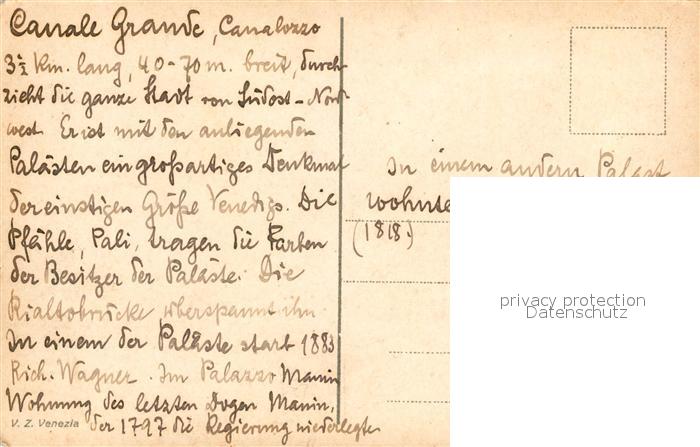 Canale Grande, Canalozzo
3½ km. lang, 40-70 m. breit, durch-
zieht die ganze Stadt von Südost-Nord
west. Er ist mit den anliegenden
Palästen ein großartiges Denkmal
der einstigen Größe Venedigs. Die
Pfähle, Pali, tragen die Farben
der Besitzer der Paläste. Die
Rialtobrücke überspannt ihn.
In einem der Paläste starb 1883
Rich. Wagner. Im Palazzo Manin
Wohnung des letzten Dogen Manin,
der 1797 die Regierung niederlegte
V. Z. Venezia
In einem andern Palast
wohnte
(1818)
privacy protection
Datenschutz